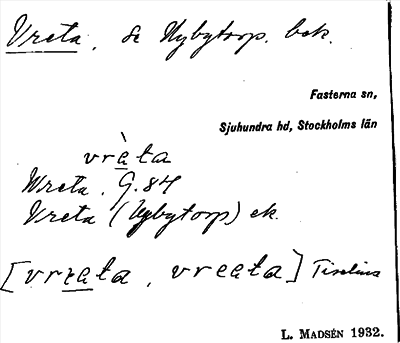 Vreta, se Nybytorp. bok.
Fasterna sn,
Sjuhundra hd, Stockholms län
vrèta
Wreta. G. 84
Vreta (Nybytorp) ek.
[vreta, vreeta] Tiselius
L. MADSÉN 1932.